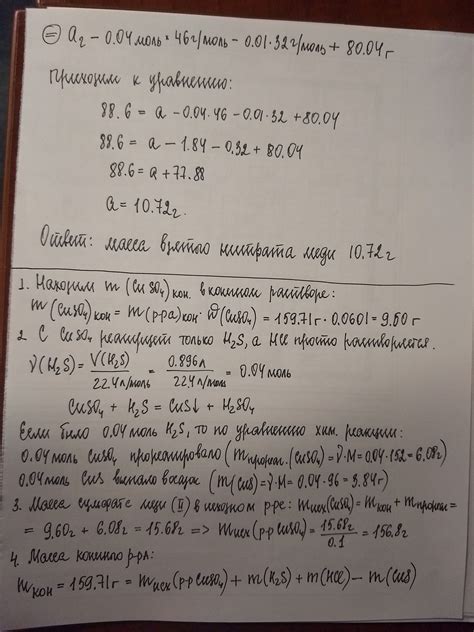 = a г - 0.04 моль * 46 г/моль - 0.01 · 32 г/моль + 80.04 г
Приходим к уравнению:
88.6 = a - 0.04 · 46 - 0.01 · 32 + 80.04
88.6 = a - 1.84 - 0.32 + 80.04
88.6 = a + 77.88
a = 10.72 г.
Ответ: масса взятого нитрата меди 10.72 г
1. Находим m (CuSO₄) кон. в конечном растворе:
m (CuSO₄) кон = m (р-ра) кон · ω (CuSO₄) = 159.71 г · 0.0601 = 9.60 г
2. С CuSO₄ реагирует только H₂S, а HCl просто растворяется.
ν(H₂S) = V(H₂S) / 22.4 л/моль = 0.896 л / 22.4 л/моль = 0.04 моль
CuSO₄ + H₂S = CuS↓ + H₂SO₄
Если было 0.04 моль H₂S, то по уравнению хим. реакции:
0.04 моль CuSO₄ прореагировало (m прореаг. (CuSO₄) = ν · M = 0.04 · 152 = 6.08 г)
0.04 моль CuS выпало в осадок (m (CuS) = ν · M = 0.04 · 96 = 3.84 г)
3. Масса сульфата меди (II) в исходном р-ре: m исх (CuSO₄) = m кон + m прореаг =
= 9.60 г + 6.08 г = 15.68 г => m исх (р-р CuSO₄) = 15.68 г / 0.1 = 156.8 г
4. Масса конечного р-ра:
m кон = 159.71 г = m исх (р-р CuSO₄) + m (H₂S) + m (HCl) - m (CuS)